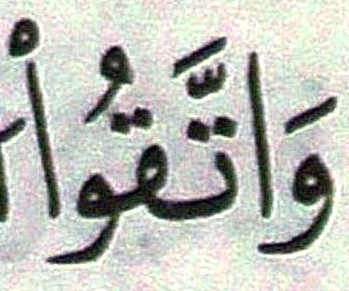 وَاتَّقُوا۟